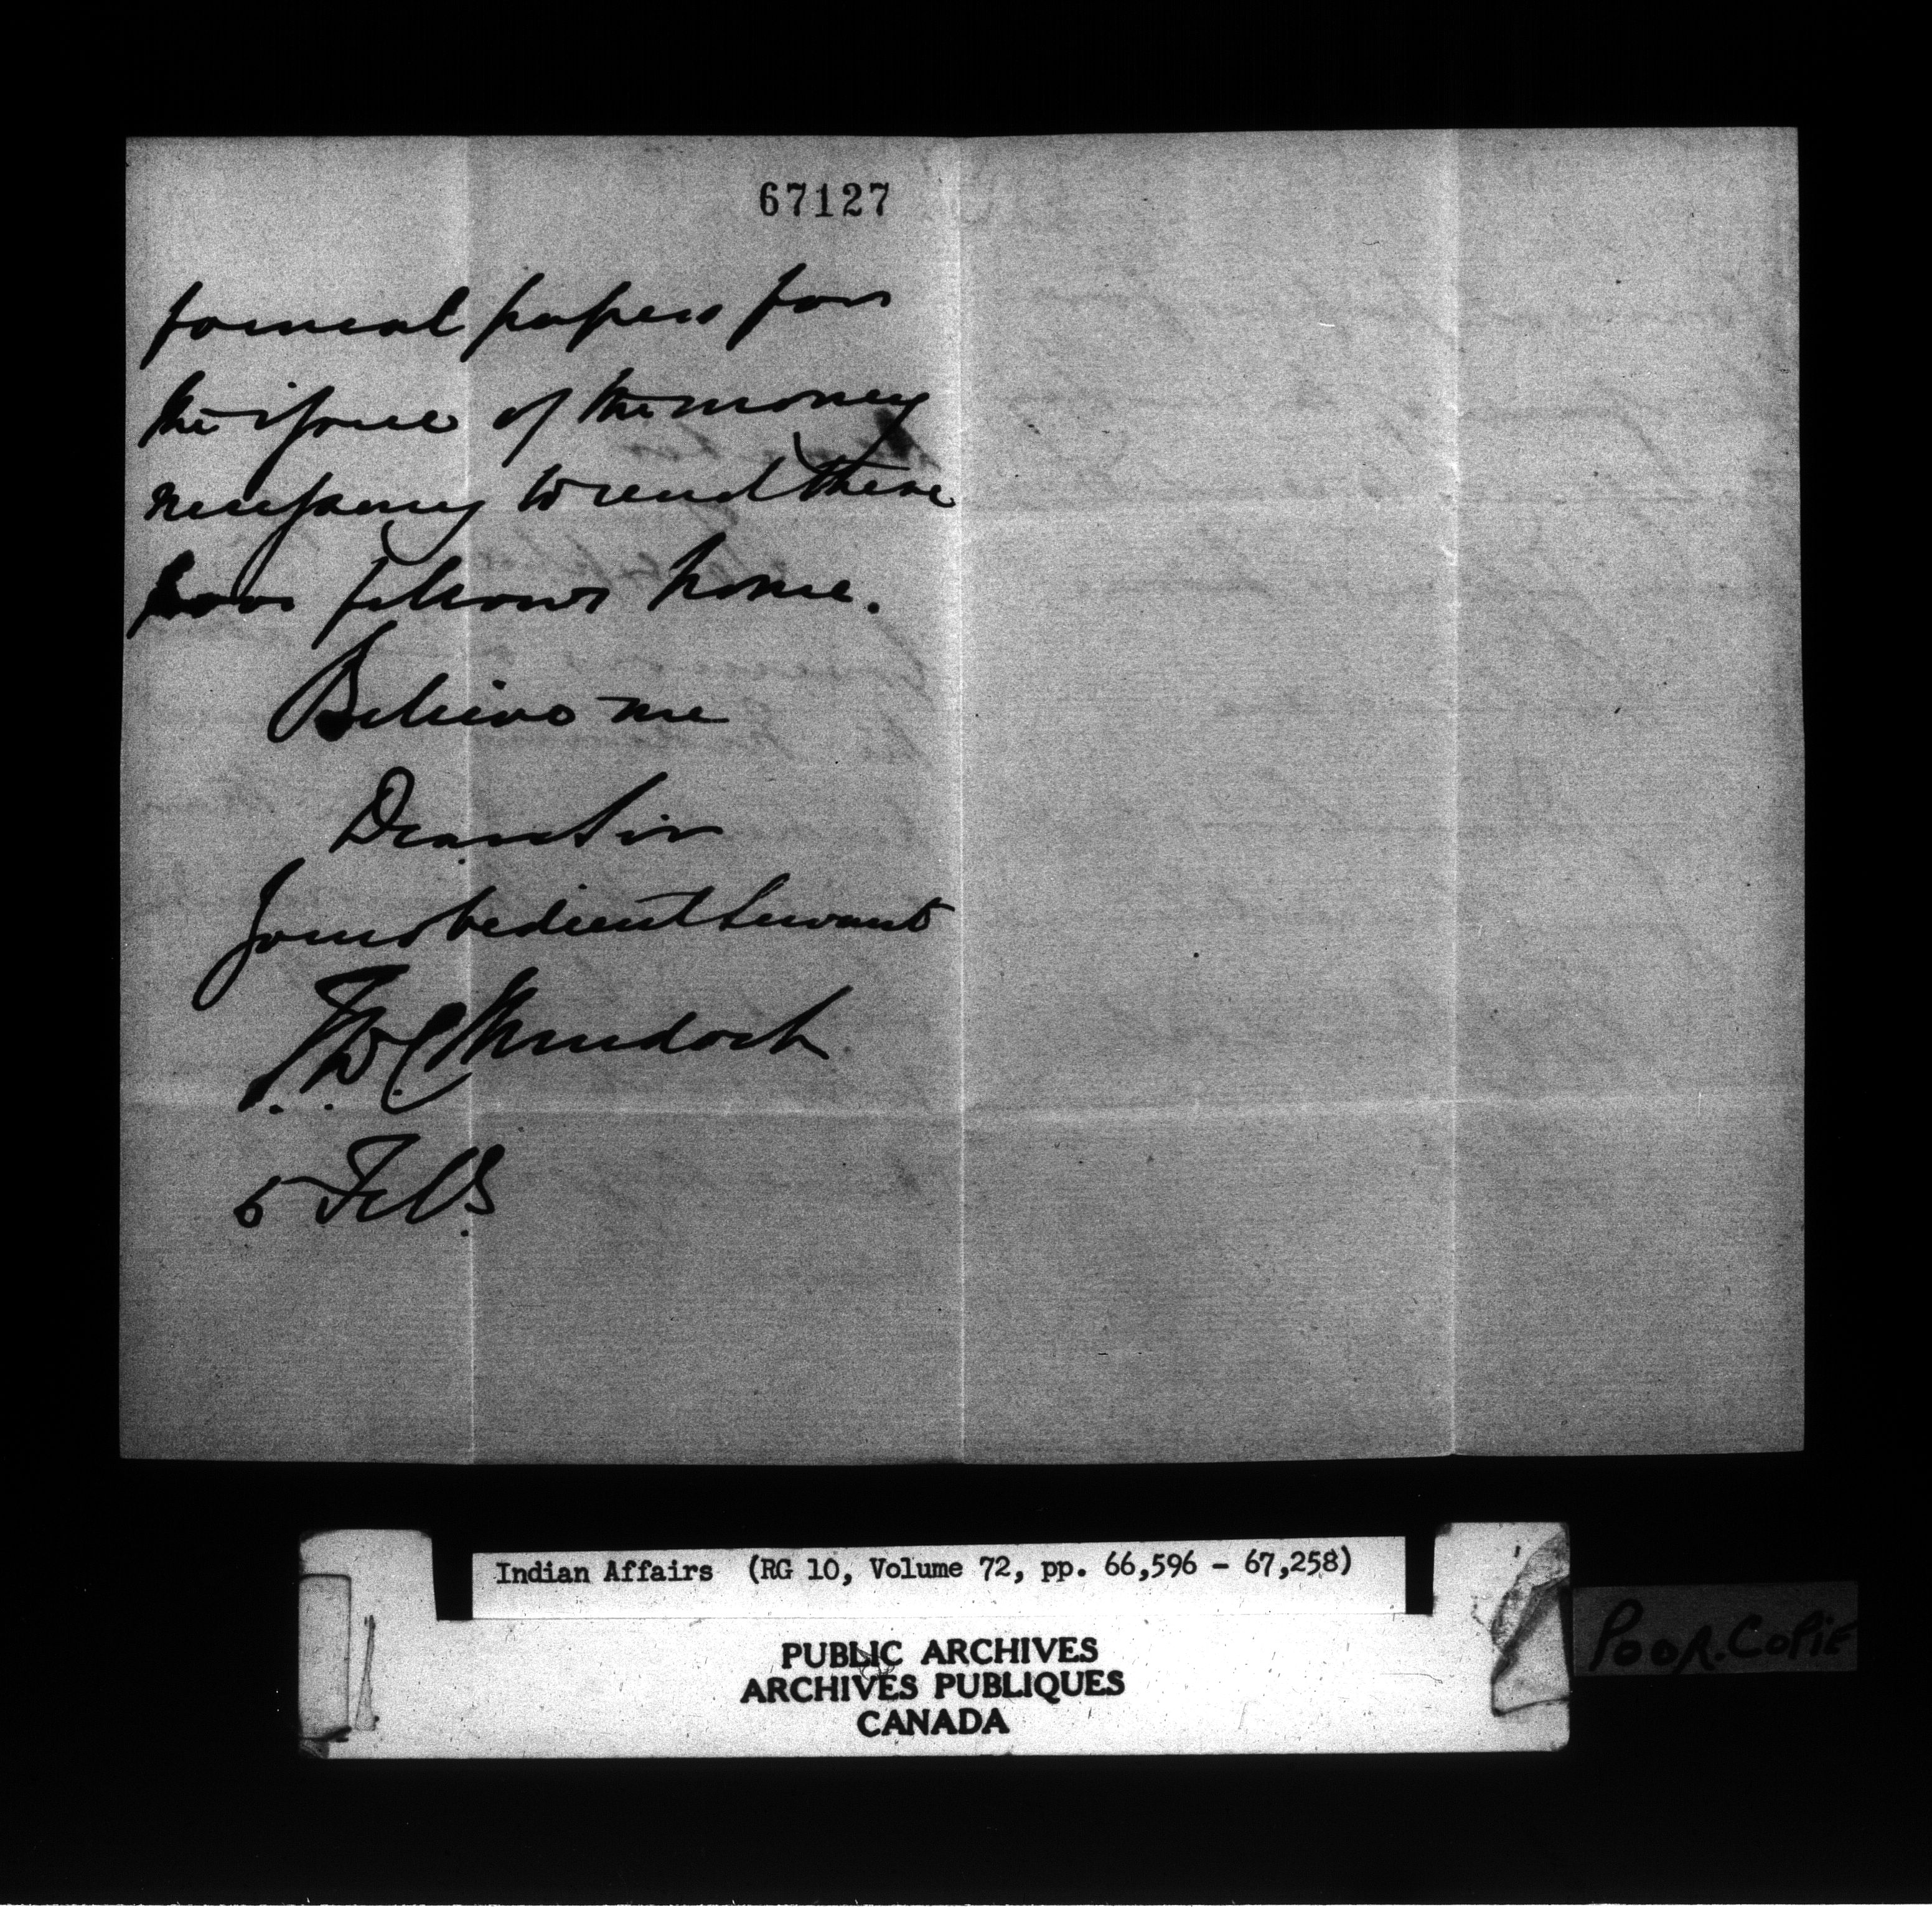 67127
formal papers for
the issue of the money
necessary to send these
poor fellows home.
Believe me
Dear Sir
Your obedient Servant
T.W.C. Murdoch
5 Feb.
Indian Affairs (RG 10, Volume 72, pp. 66,596 - 67,258)
PUBLIC ARCHIVES
ARCHIVES PUBLIQUES
CANADA
POOR.COPIE